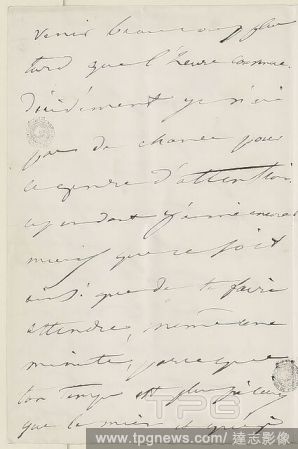 venir beaucoup plus
tard que l'heure convenue.
Décidément je n'ai
pas de chance pour
ce genre d'attention.
cependant j'aime encore
mieux que ce soit
ainsi que de te faire
attendre, même une
minute, parce que
ton temps est plus précieux
que le mien et que je
TPG
www.tpgnews.com | 達志影像